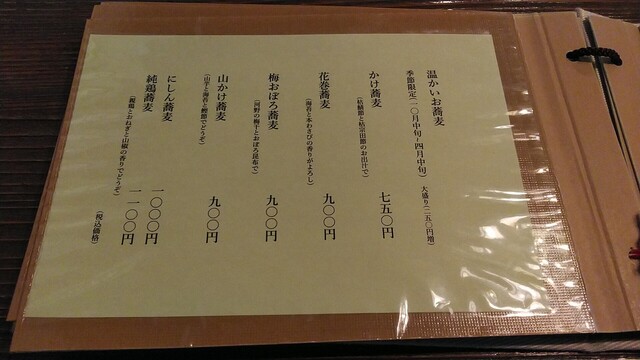 温かいお蕎麦
季節限定(一〇月中旬~四月中旬) 大盛り(二五〇円増)
かけ蕎麦 七五〇円
(枯鯖節と枯宗田節のお出汁で)
花巻蕎麦 九〇〇円
(海苔と本わさびの香りがよろし)
梅おぼろ蕎麦 九〇〇円
(河野の梅干とおぼろ昆布で)
山かけ蕎麦 九〇〇円
(山芋と海苔と鰹節でどうぞ)
にしん蕎麦 一〇〇〇円
純鶏蕎麦 一一〇〇円
(親鶏とおねぎと山椒の香りでどうぞ)
(税込価格)